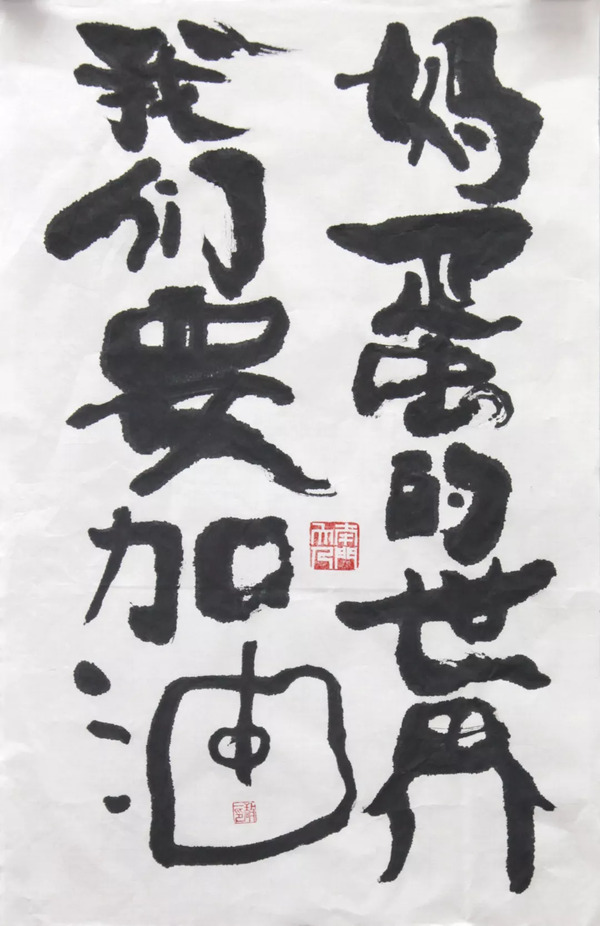 妈蛋的世界
我们要加油
南門